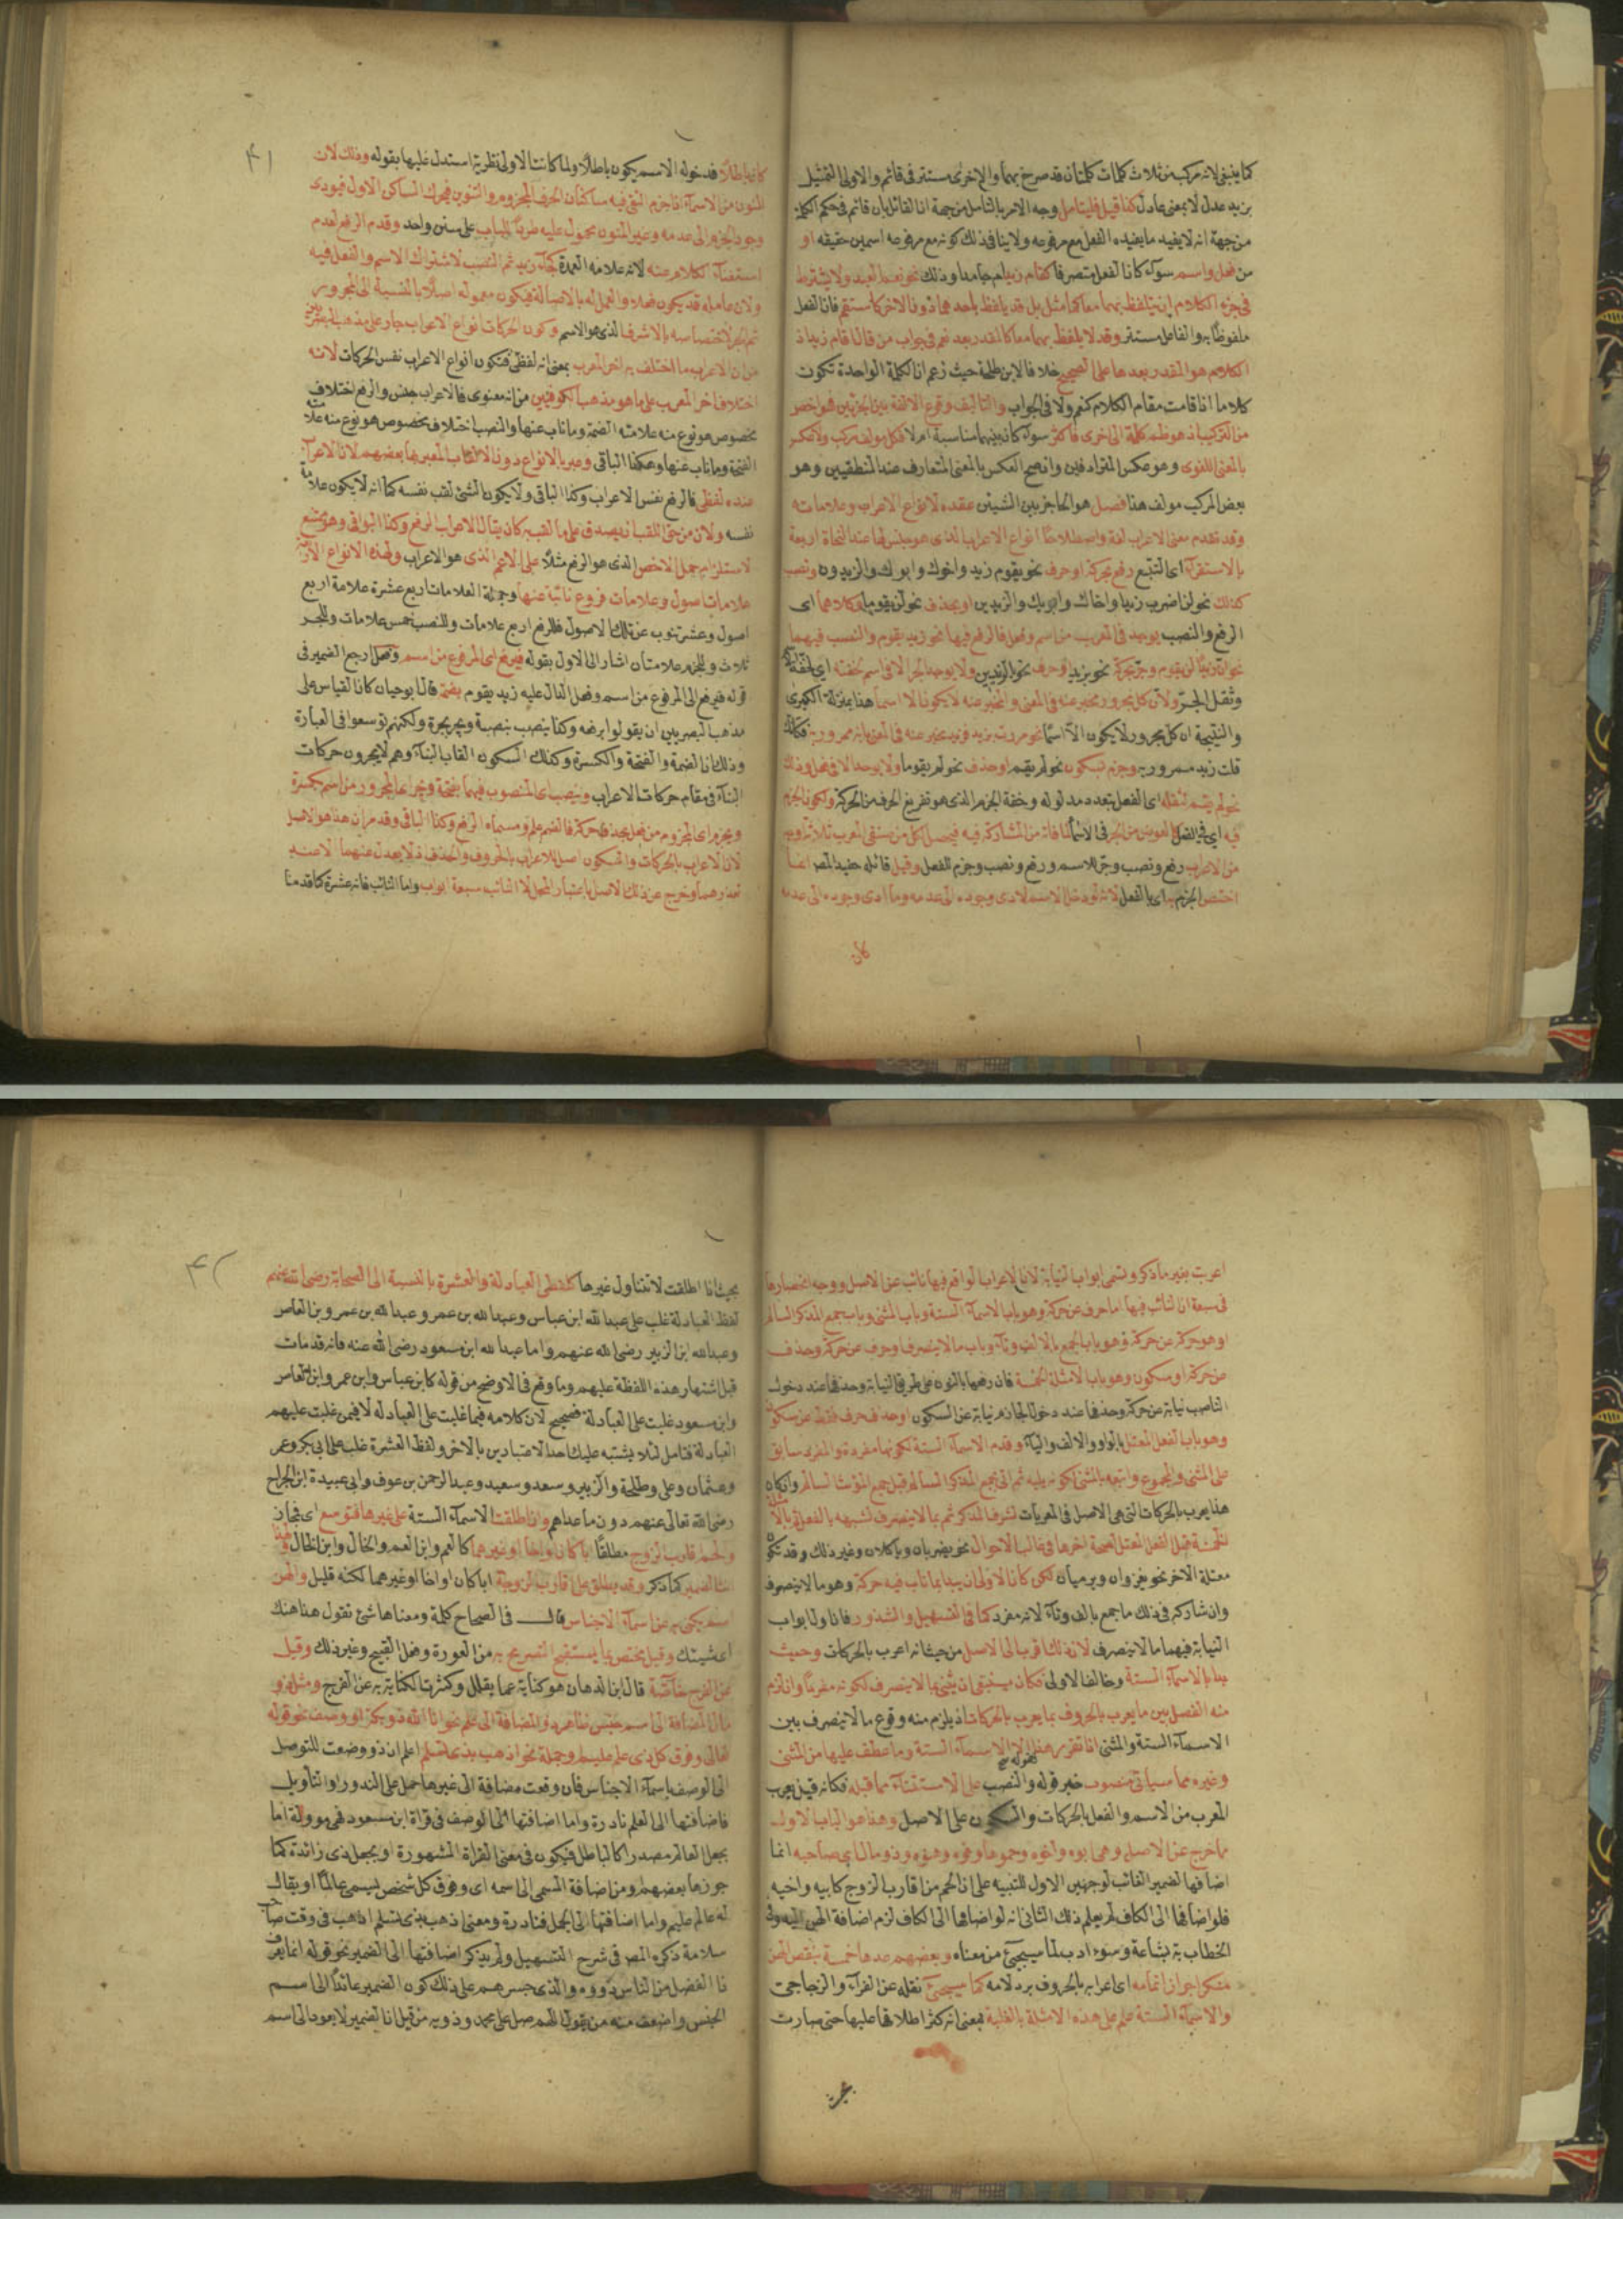 كما ينبغي لانه مركب من ثلاث كلمات كلمتان قد صرح بهما والاخرى مستتر في قائم والاولى التمثيل
بزيد عدل لا بمعنى عادل كذا قيل فليتامل وجه الامر بالتامل من جهة ان القائل بان قائم في حكم الكلمة
من جهة انه لا يفيد ما يفيده الفعل مع مرفوعه ولا ينافي ذلك كونه مع مرفوعه اسمين حقيقه او
من فعل واسم سوآء كان الفعل متصرفا كقام زيد ام جامدا وذلك نحو نعم العبد ولا يشترط
في جزء الكلام ان يتلفظ بهما معا كما مثل بل قد يلفظ باحدهما دون الاخر كاستقم فان الفعل
ملفوظ به والفاعل مستتر وقد لا يلفظ بهما معا كالمقدر بعد نعم في جواب من قال اقام زيد اذ
الكلام هو المقدر بعدها على الصحيح خلافا لابن طلحة حيث زعم ان الكلمة الواحدة تكون
كلاما اذا قامت مقام الكلام كنعم ولا في الجواب والتاليف وقوع الالفة بين الجزئين فهو اخص
من التركيب اذ هو ظم كلمة الى اخرى فاكثر سوآء كان بينهما مناسبة ام لا فكل مولف مركب ولا عكس
بالمعنى اللغوى وهو عكس المترادفين وان صح العكس بالمعنى المتعارف عند المنطقيين وهو
بعض المركب مولف هذا فصل هو الحاجز بين الشيئين عقده لانواع الاعراب وعلاماته
وقد تقدم معنى الاعراب لغة واصطلاحا انواع الاعراب الذي هو جنس لها عند النحاة اربعة
بالاستقرآء اي التتبع رفع بحركة او حرف نحو يقوم زيد واخوك وابوك والزيدون ونصب
كذلك نحو لن اضرب زيدا واخاك وابويك والزيدين او بحذف نحو لن يقوما فكلاهما اى
الرفع والنصب يوجد في المعرب من اسم وفعل فالرفع فيها نحو زيد يقوم والنصب فيهما
نحو ان زيدا لن يقوم وجر بحركة نحو بزيد او حرف نحو الزيدين ولا يوجد الجر الا في اسم لخفته اي لخفة
وثقل الجر ولان كل مجرور مخبر عنه في المعنى والمخبر عنه لا يكون الا اسما هذا بمنزلة الكبرى
والنتيجة ان كل مجرور لا يكون الا اسما نحو مررت بزيد فزيد مخبر عنه في المعنى بانه ممرور به فكانك
قلت زيد ممرور به وجزم بسكون نحو لم يقم او حذف نحو لم يقوما ولا يوجد الا في فعل وذلك
نحو لم يقم لثقله اى الفعل بتعدد مدلوله وخفة الجزم الذي هو تفريغ الحرف من الحركة وليكون الجزم
فيه اي في الفعل كالعوض من الجر في الاسماء لما فاته من المشاركة فيه فيحصل لكل من صنفي المعرب ثلاثة اوجه
من الاعراب رفع ونصب وجر للاسم ورفع ونصب وجزم للفعل وقيل قائله حفيد المصر انما
اختص الجزم به اي بالفعل لانه لو دخل الاسم لادى وجوده الى عدمه وما ادى وجوده الى عدمه
كان
۴۱
كان باطلا فدخوله الاسم يكون باطلا ولما كانت الاولى نظرية استدل عليها بقوله وذلك لان
المنون من الاسمآء اذا جزم التقى فيه ساكنان الحرف المجزوم والتنوين فيحرك الساكن الاول فيودى
وجود الجزم الى عدمه وغير المنون محمول عليه طردا للباب على سنن واحد وقدم الرفع لعدم
استغنآء الكلام عنه لانه علامة العمدة كجآء زيد ثم النصب لاشتراك الاسم والفعل فيه
ولان عامله قد يكون فعلا والعمل له بالاصالة فيكون معموله اصلا بالنسبة الى المجرور
ثم الجر لاختصاصه بالاشرف الذي هو الاسم وكون الحركات انواع الاعراب جار على مذهب البصريين
من ان الاعراب ما اختلف به اخر المعرب بمعنى انه لفظي فتكون انواع الاعراب نفس الحركات لا انه
اختلاف اخر المعرب على ما هو مذهب الكوفيين من انه معنوى فالاعراب جنس والرفع اختلاف
مخصوص هو نوع منه علامته الضمة وما ناب عنها والنصب اختلاف مخصوص هو نوع منه علامته
الفتحة وما ناب عنها وهكذا الباقي وعبر بالانواع دون الالقاب المعبر بها بعضهم لان الاعراب
عنده لفظي فالرفع نفس الاعراب وكذا الباقي ولا يكون الشئ لقب نفسه كما انه لا يكون علامة
نفسه ولان من حق اللقب ان يصدق على ما لقب به كان يقال الاعراب الرفع وكذا البواقي وهو ممتنع
لاستلزامه حمل الاخص الذي هو الرفع مثلا على الاعم الذي هو الاعراب ولهذه الانواع الاربعة
علامات اصول وعلامات فروع نائبة عنها وجملة العلامات اربع عشرة علامة اربع
اصول وعشرة تنوب عن تلك الاصول فللرفع اربع علامات وللنصب خمس علامات وللجر
ثلاث وللجزم علامتان اشار الى الاول بقوله فيرفع اى المرفوع من اسم وفعل ارجع الضمير في
قوله فيرفع الى المرفوع من اسم وفعل الدال عليه زيد يقوم بضم قال ابو حيان كان القياس على
مذهب البصريين ان يقولوا برفعه وكذا ينصب بنصبة ويجر بجرة ولكنهم توسعوا في العبارة
وذلك ان الضمة والفتحة والكسرة وكذلك السكون القاب البنآء وهم لا يجرون حركات
البنآء في مقام حركات الاعراب وينصب اى المنصوب فيهما بفتحة ويجر اى المجرور من اسم بكسرة
ويجزم اى المجزوم من فعل بحذف حركة فالضم علم ومسماه الرفع وكذا الباقي وقدم ان هذا هو الاصل
لان الاعراب بالحركات والسكون اصل للاعراب بالحروف والحذف اذ لا يعدل عنهما الا عند
تعذرهما وخرج عن ذلك الاصل باعتبار المحل لا النائب سبعة ابواب واما النائب فانه عشرة كما قدمنا
اعرب بغير ما ذكر وتسمى ابواب النيابة لان الاعراب الواقع فيها نائب عن الاصل ووجه انحصارها
في سبعة ان النائب فيها اما حرف عن حركة وهو باب الاسمآء الستة وباب المثنى وباب جمع المذكر السالم
او هو حركة عن حركة وهو باب الجمع بالالف وتآء وباب ما لا ينصرف او حرف عن حركة وحذف
عن حركة او سكون وهو باب الامثلة الخمسة فان رفعها بالنون على طريق النيابة وحذفها عند دخول
الناصب نيابة عن حركة وحذفها عند دخول الجازم نيابة عن السكون او حذف حرف فقط عن سكون
وهو باب الفعل المعتل بالواو والالف واليآء وقدم الاسمآء الستة لكونها مفردة والمفرد سابق
على المثنى والمجموع واتبعه بالمثنى لكونه يليه ثم اتى بجمع المذكر السالم قبل جمع المؤنث السالم وان كان
هذا يعرب بالحركات التى هي الاصل في المعربات لشرف المذكر ثم بما لا ينصرف لشبهه بالفعل ثم بالامثلة
الخمسة قبل الفعل المعتل لصحة اخرها في غالب الاحوال نحو يضربان وياكلان وغير ذلك وقد تكون
معتلة الاخر نحو يغزوان ويرميان لكن كان الاولى ان يبدا بما ناب فيه حركة وهو ما لا ينصرف
وان شاركه في ذلك ما جمع بالف وتآء لانه مفرد كما في التسهيل والشذور فانا ولا ابواب
النيابة فيهما ما لا ينصرف لان ذلك اقرب الى الاصل من حيث انه اعرب بالحركات وحيث
بدا بالاسمآء الستة وخالف الاولى فكان ينبغي ان يثنى بما لا ينصرف لكونه مفردا وان لزم
منه الفصل بين ما يعرب بالحروف بما يعرب بالحركات اذ يلزم منه وقوع ما لا ينصرف بين
الاسمآء الستة والمثنى اذا تقرر هذا الا الاسمآء الستة وما عطف عليها من المثنى
وغيره مما سياتي منصوب خبر قوله والنصب على الاستثنآء مما قبله فكانه قيل يعرب
المعرب من الاسم والفعل بالحركات والسكون على الاصل وهذا هو الباب الاول
مما خرج عن الاصل وهي ابوه واخوه وحموها وفوه وهنوه وذو مال اي صاحبه انما
اضافها لضمير الغائب لوجهين الاول للتنبيه على ان الحم من اقارب الزوج كابيه واخيه
فلو اضافها الى الكاف لم يعلم ذلك الثاني انه لو اضافها الى الكاف لزم اضافة الهن اليه وفي
الخطاب به بشاعة وسوء ادب لما سيجئ من معناه وبعضهم عدها خمسة بنقص الهن
منكرا جواز اتمامه اى اعرابه بالحروف برد لامه كما سيجئ نقله عن الفرآء والزجاجي
والاسمآء الستة علم على هذه الامثلة بالغلبة بمعنى انه كثر اطلاقها عليها حتى صارت
۴۲
بحيث اذا اطلقت لا تتناول غيرها كلفظي العبادلة والعشرة بالنسبة الى الصحابة رضى الله عنهم
لفظ العبادلة غلب على عبد الله ابن عباس وعبد الله بن عمر وعبد الله بن عمرو بن العاص
وعبد الله ابن الزبير رضى الله عنهم واما عبد الله ابن مسعود رضى الله عنه فانه قد مات
قبل اشتهار هذه اللفظة عليهم وما وقع في الاوضح من قوله كابن عباس وابن عمر وابن العاص
وابن مسعود غلبت على العبادلة فصحيح لان كلامه فيما غلبت على العبادلة لا فيمن غلبت عليهم
العبادلة فتامل لئلا يشتبه عليك احد الاعتبارين بالاخر ولفظ العشرة غلب على ابي بكر وعمر
وعثمان وعلى وطلحة والزبير وسعد وسعيد وعبد الرحمن بن عوف وابي عبيدة ابن الجراح
رضى الله تعالى عنهم دون ما عداهم واذا اطلقت الاسمآء الستة على غيرها فتوسع اى فمجاز
والحم قارب الزوج مطلقا ابا كان او اخا او غيرهما كالعم وابن العم والخال وابن الخال
الضمير كما ذكر وقد يطلق على قارب الزوجة ابا كان او اخا او غيرهما لكنه قليل والهن
اسم يكنى به عن اسمآء الاجناس قال في الصحاح كلمة ومعناها شئ تقول هذا هنك
اى شيئك وقيل يختص بما يستقبح التصريح به من العورة وفعل القبيح وغير ذلك وقيل
عن الفرج خاصة قال ابن الدهان هو كناية عما يقلل وكثرت الكناية به عن الفرج ومثل ذو
مال المضافة الى اسم جنس ظاهر ذو المضافة الى علم نحو انا الله ذو بكة او وصف نحو قوله
تعالى وفوق كل ذى علم عليم او جملة نحو اذهب بذى تسلم اعلم ان ذو وضعت للتوصل
الى الوصف باسمآء الاجناس فان وقعت مضافة الى غيرها حمل على الندور او التاويل
فاضافتها الى العلم نادرة واما اضافتها الى الوصف في قراة ابن مسعود فهي موولة اما
بجعل العالم مصدرا كالباطل فيكون في معنى القراة المشهورة او بجعل ذى زائدة كما
جوزها بعضهم ومن اضافة المسمى الى اسمه اى وفوق كل شخص يسمى عالما او يقال
له عالم عليم واما اضافتها الى الجمل فنادرة ومعنى اذهب بذى تسلم اذهب في وقت صاحب
سلامة ذكره المصر في شرح التسهيل ولم يذكر اضافتها الى الضمير نحو قوله انما يعرف
ذا الفضل من الناس ذووه والذى جسرهم على ذلك كون الضمير عائدا الى اسم
الجنس واضعف منه من يقول اللهم صل على محمد وذويه من قبل ان الضمير لا يعود الى اسم